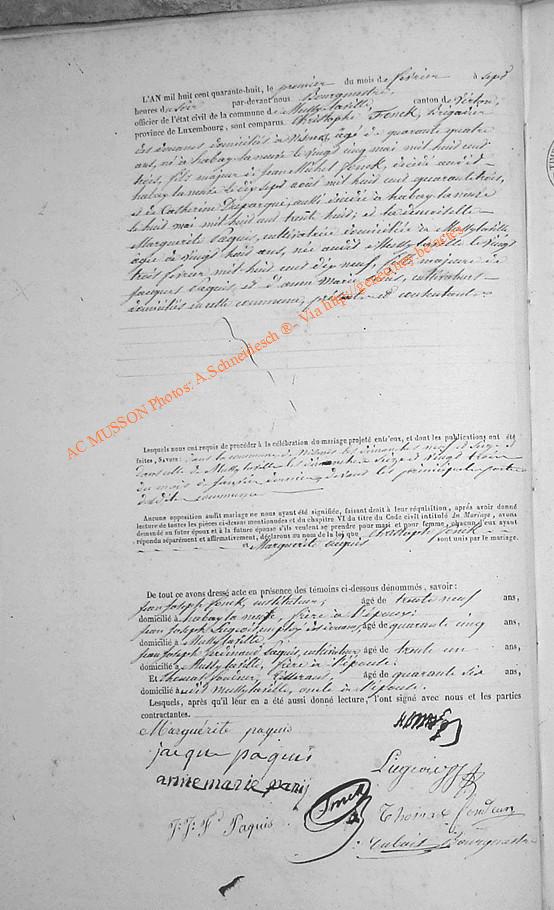 L'AN mil huit cent quarante-huit, le premier du mois de février à sept
heures du soir par-devant nous Bourgmestre,
officier de l'état civil de la commune de Mussy-laville canton de Virton,
province de Luxembourg, sont comparus Christophe Fonck, Brigadier
des douanes domicilié à âgé de quarante quatre
ans, né à habay la neuve le vingt cinq mai mil huit cent
trois, fils majeur de Jean Michel Fonck, décédé audit
habay la neuve le dix sept aout mil huit cent quarante trois,
et de Catherine aussi décédée à habay la neuve
le huit mai mil huit cent trente huit; et la demoiselle
Marguerite Paquis, cultivatrice domiciliée à Mussy laville
agée de vingt huit ans, née audit Mussy laville le vingt
trois février mil huit cent dix neuf, fille majeure de
Jacques Paquis, et d'anne Marie cultivateurs
domiciliés en cette commune, présents et consentants
Lesquels nous ont requis de procéder à la célébration du mariage projeté entr'eux, et dont les publications ont été
faites, Savoir: dans la commune de les dimanches neuf et seize et
dans celle de Mussy laville les dimanche seize et vingt trois
du mois de janvier dernier devant les principales portes
desdites communes
Aucune opposition audit mariage ne nous ayant été signifiée, faisant droit à leur réquisition, après avoir donné
lecture de toutes les pièces ci-dessus mentionnées et du chapitre VI du titre du Code civil intitulé Du Mariage, avons
demandé au futur époux et à la future épouse s'ils veulent se prendre pour mari et pour femme, chacun d'eux ayant
répondu séparément et affirmativement, déclarons au nom de la loi que Christophe Fonck
et Marguerite Paquis sont unis par le mariage.
De tout ce avons dressé acte en présence des témoins ci-dessous dénommés, savoir:
Jean Joseph Fonck, instituteur, âgé de trente neuf ans,
domicilié à habay la neuve, frère à l'époux;
Jean Joseph employé des douanes, âgé de quarante cinq ans,
domicilié à Mussy laville;
Jean Joseph Ferdinand Paquis, cultivateur âgé de trente un ans,
domicilié à Mussy laville, frère à l'épouse;
Et Thomas âgé de quarante six ans,
domicilié audit Mussy laville, oncle à l'épouse.
Lesquels, après qu'il leur en a été aussi donné lecture, l'ont signé avec nous et les parties
contractantes.
Marguérite paquis
jacque paquis
annemarie
J. J. Fd Paquis
Fonck
Thomas
Bourgmestre
AC MUSSON Photos: A.Schneidesch ® - Via http://geneoney.be/actes